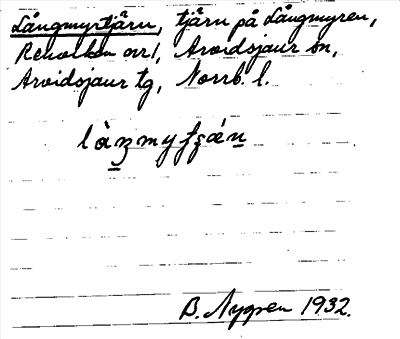 Långmyrtjärn, tjärn på Långmyren,
Renvallen nrl, Arvidsjaur sn,
Arvidsjaur tg, Norrb. l.
B. Nygren 1932.